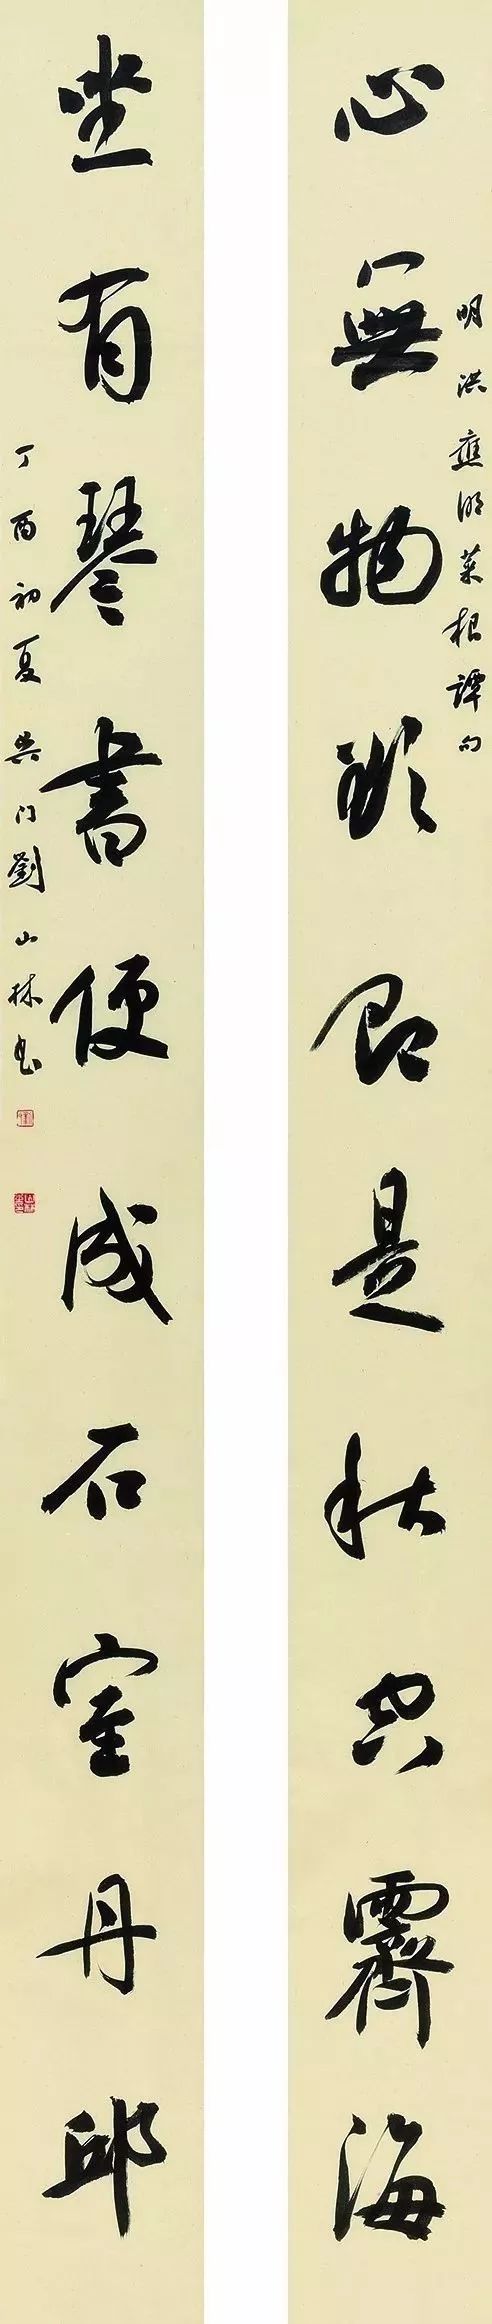 明洪應明菜根譚句
心無物欲即是秋空霽海
坐有琴書便成石室丹邱
丁酉初夏吴门劉山林书